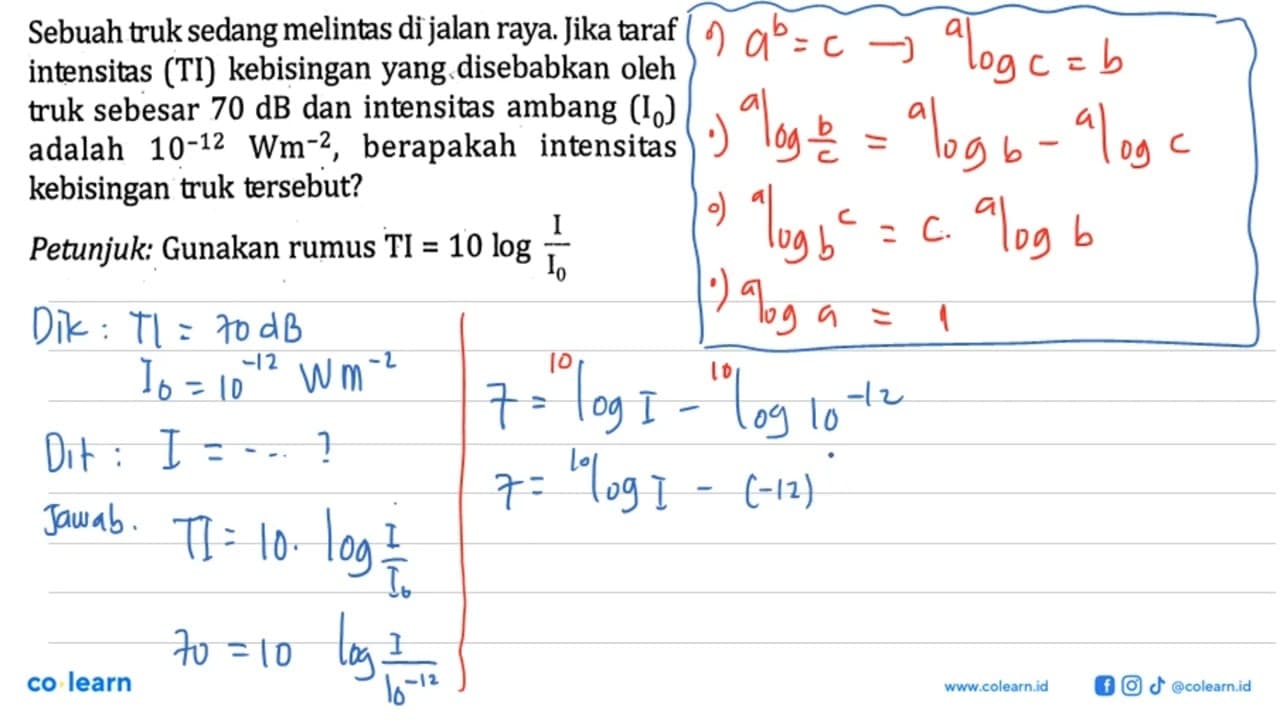 Sebuah truk sedang melintas di jalan raya. Jika taraf
intensitas (TI) kebisingan yang disebabkan oleh
truk sebesar 70 dB dan intensitas ambang (I₀)
adalah 10⁻¹² Wm⁻², berapakah intensitas
kebisingan truk tersebut?
Petunjuk: Gunakan rumus TI = 10 log I/I₀
•) aᵇ = c → ᵃlog c = b
•) ᵃlog b/c = ᵃlog b - ᵃlog c
•) ᵃlog bᶜ = c. ᵃlog b
•) ᵃlog a = 1
Dik : TI = 70 dB
I₀ = 10⁻¹² Wm⁻²
Dit : I = --.. ?
Jawab. TI = 10. log I/I₀
70 = 10 log I/10⁻¹²
7 = ¹⁰log I - ¹⁰log 10⁻¹²
7 = ¹⁰log I - (-12)
co learn
www.colearn.id
@colearn.id